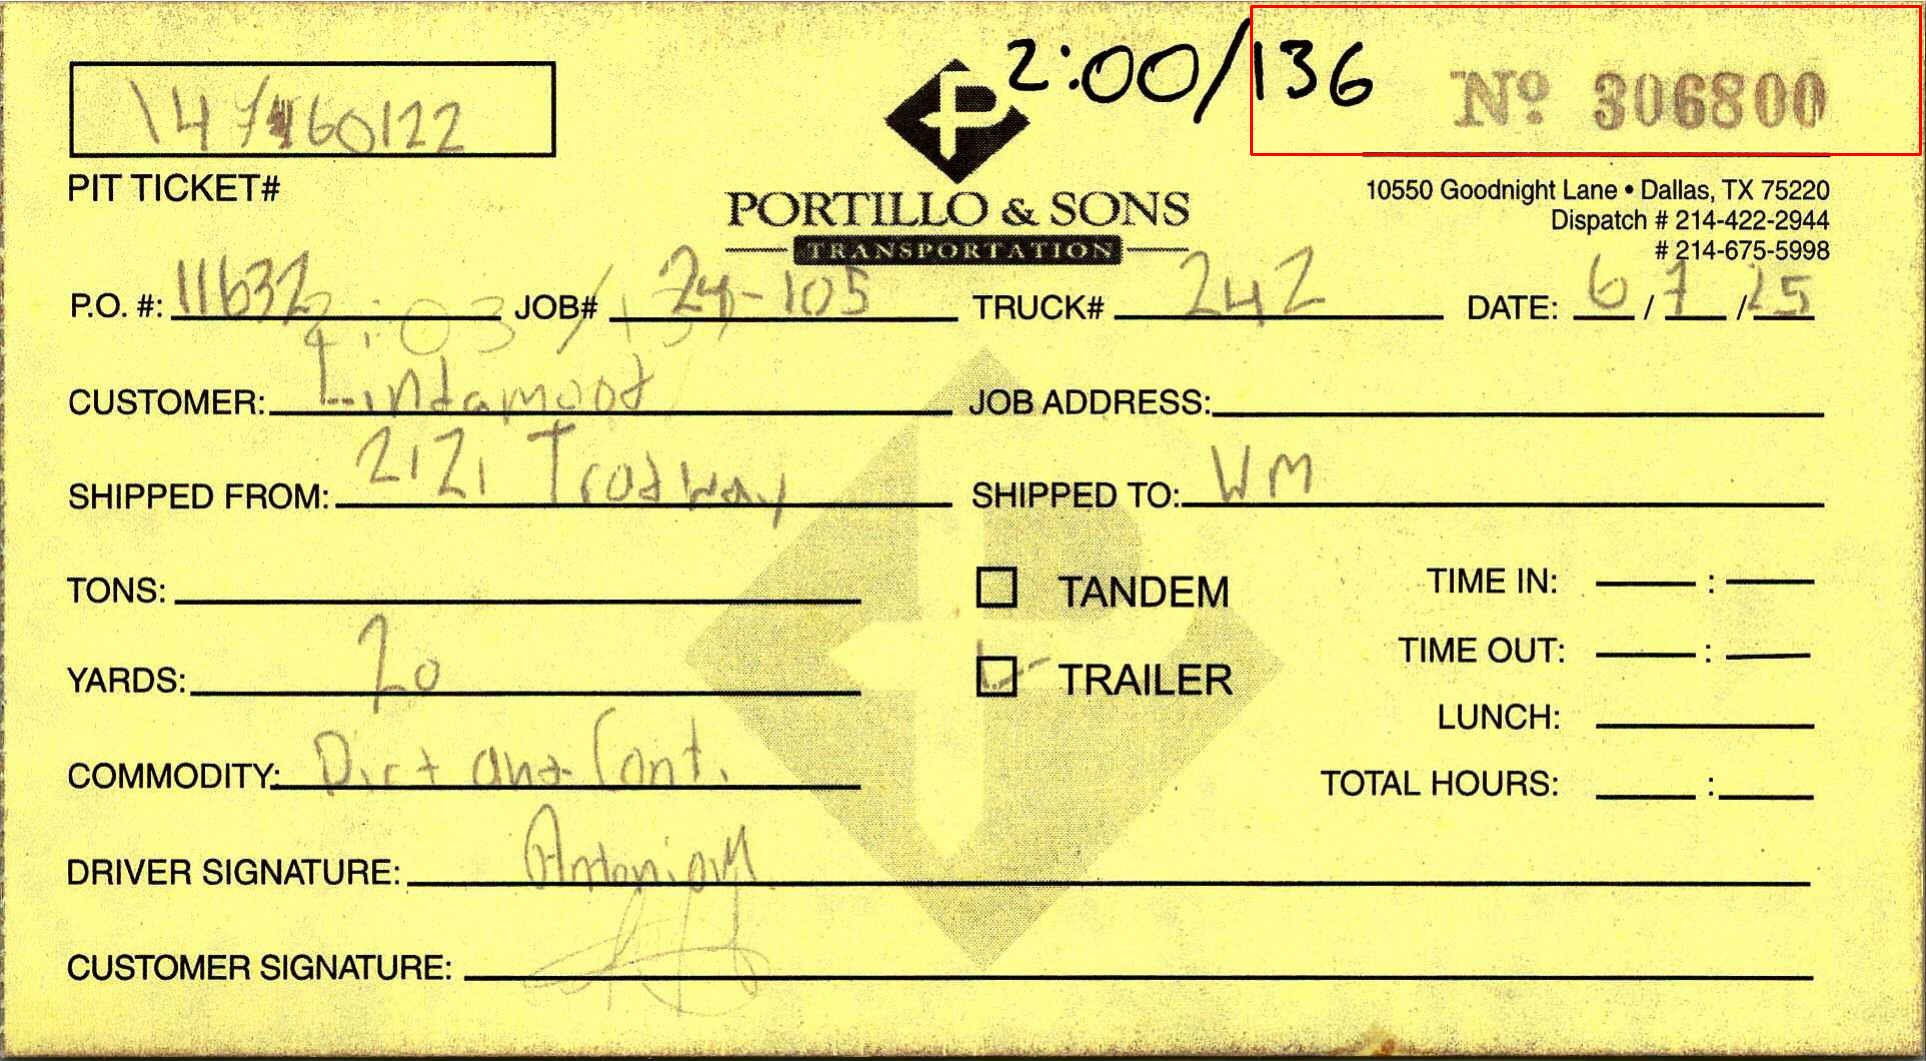 2:00/136
Nº 306800
147460122
PIT TICKET#
PORTILLO & SONS
TRANSPORTATION
10550 Goodnight Lane • Dallas, TX 75220
Dispatch # 214-422-2944
# 214-675-5998
P.O. #: 11632 JOB# 24-105 TRUCK# 242 DATE: 6 / 7 / 25
CUSTOMER: Lindamood JOB ADDRESS:
SHIPPED FROM: 2121 Trodway SHIPPED TO: WM
TONS: TANDEM TIME IN: :
TIME OUT: :
YARDS: 20 TRAILER
LUNCH:
COMMODITY: Dirt and Cont. TOTAL HOURS: :
DRIVER SIGNATURE: Antonio M.
CUSTOMER SIGNATURE: